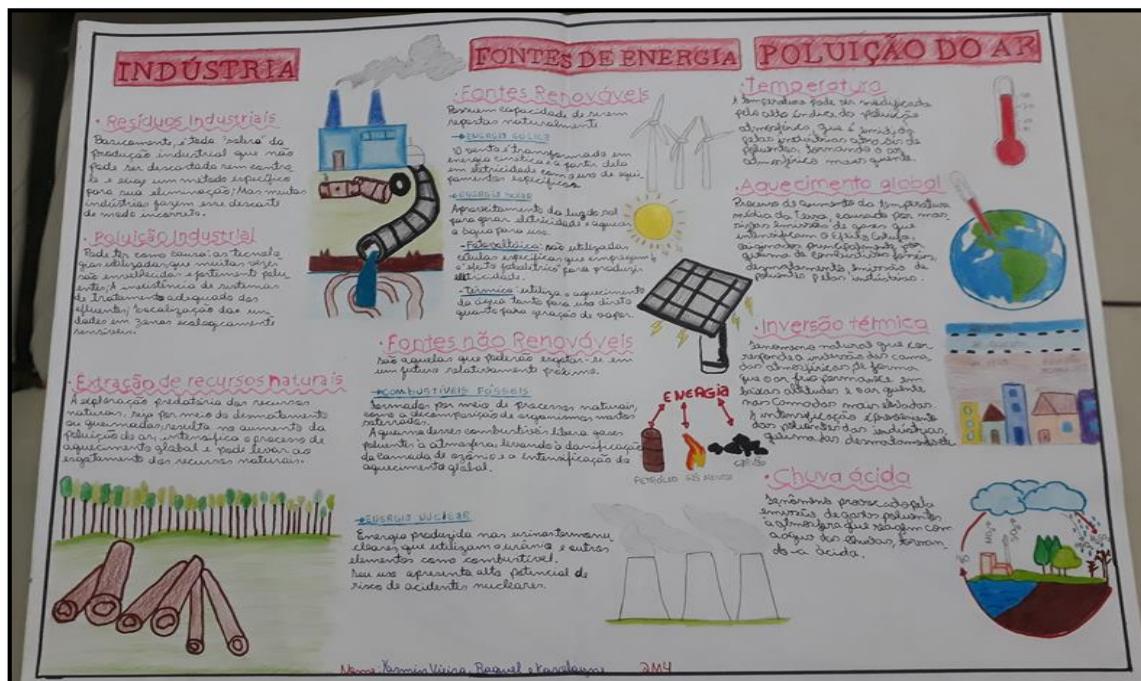 INDÚSTRIA
• Resíduos Industriais
Basicamente, é toda "sobra" da
produção industrial que não
pode ser descartado sem contro
le e exige um método específico
para sua eliminação; Mas muitas
indústrias fazem esse descarte
de modo incorreto.
• Poluição Industrial
Pode ter como causa: as tecnolo
gias utilizadas, que muitas vezes
são envelhecidas e fortemente polu
entes; A inexistência de sistemas
de tratamento adequado dos
efluentes; localização das uni
dades em zonas ecologicamente
sensíveis.
• Extração de recursos naturais
A exploração predatória dos recursos
naturais, seja por meio do desmatamento
ou queimadas, resulta no aumento da
poluição do ar, intensifica o processo de
aquecimento global e pode levar ao
esgotamento dos recursos naturais.
FONTES DE ENERGIA
• Fontes Renováveis
Possuem capacidade de serem
repostas naturalmente
→ ENERGIA EÓLICA
O vento é transformado em
energia cinética e a partir dela
em eletricidade com o uso de equi
pamentos específicos.
→ ENERGIA SOLAR
Aproveitamento da luz do sol
para gerar eletricidade e aquecer
a água para uso.
- Fotovoltáica: são utilizadas
células específicas que empregam
o "efeito fotoelétrico" para produzir
eletricidade.
- Térmica: utiliza o aquecimento
da água tanto para uso direto
quanto para geração de vapor.
• Fontes não Renováveis
São aquelas que poderão esgotar-se em
um futuro relativamente próximo.
→ COMBUSTÍVEIS FÓSSEIS
Formados por meio de processos naturais,
como a decomposição de organismos mortos
soterrados.
A queima desses combustíveis libera gases
poluentes à atmosfera, levando à danificação
da camada de ozônio e a intensificação do
aquecimento global.
ENERGIA
PETRÓLEO GÁS NATURAL CARVÃO
→ ENERGIA NUCLEAR
Energia produzida nas usinas termonu
cleares, que utilizam o urânio e outros
elementos como combustível.
Seu uso apresenta alto potencial de
risco de acidentes nucleares.
POLUIÇÃO DO AR
• Temperatura
A temperatura pode ser modificada
pelo alto índice de poluição
atmosférica, que é emitida
pelas indústrias através de
poluentes, tornando o ar
atmosférico mais quente.
• Aquecimento global
Processo de aumento da temperatura
média da Terra, causado por mas
sivas emissão de gases que
intensificam o Efeito Estufa,
originados principalmente por
queima de combustíveis fósseis,
desmatamento, emissão de
poluentes pelas indústrias.
• Inversão térmica
Fenômeno natural que cor
responde a inversão das cama
das atmosféricas, de forma
que o ar frio permanece em
baixas altitudes e o ar quente
nas camadas mais elevadas.
A intensificação é proveniente
dos poluentes das indústrias,
queima das
• Chuva ácida
Fenômeno provocado pela
emissão, de gases poluentes
à atmosfera que reagem com
a água das chuvas, tornan
do-a ácida.
Nome: Yasmin Vieira, Raquel e Karolayne 2M4